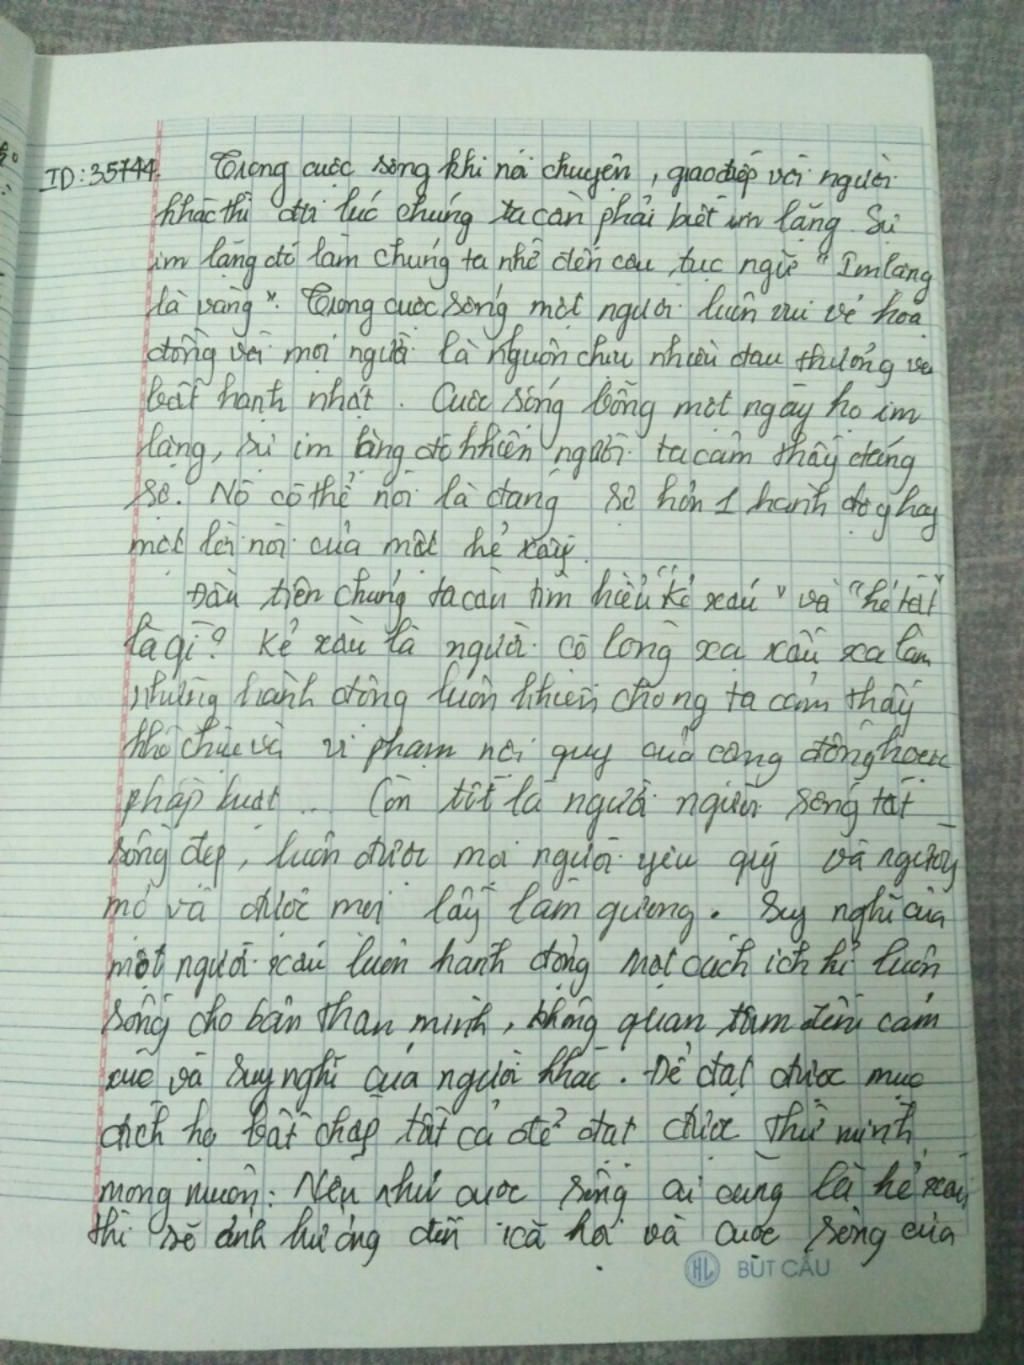 ID: 35744. Trong cuộc sống khi nói chuyện, giao tiếp với người
khác thì đôi lúc chúng ta cần phải biết im lặng. Sự
im lặng đó làm chúng ta nhớ đến câu tục ngữ "Im lặng
là vàng". Trong cuộc sống một người luôn vui vẻ hoạ
đồng với mọi người là nguồn chịu nhiều đau thương và
bất hạnh nhất. Cuộc sống bỗng một ngày họ im
lặng, sự im lặng đó khiến người ta cảm thấy đáng
sợ. Nó có thể nói là đáng sợ hơn 1 hành động hay
một lời nói của một kẻ xấu.
Đầu tiên chúng ta cần tìm hiểu "kẻ xấu" và "kẻ tốt"
là gì? Kẻ xấu là người có lòng xạ xấu xa làm
những hành động luôn khiến chúng ta cảm thấy
khó chịu và vi phạm nội quy của cộng đồng hoặc
pháp luật... Còn tốt là người người sống tốt
sống đẹp, luôn được mọi người yêu quý và ngưỡng
mộ và được mọi lấy làm gương. Suy nghĩ của
một người xấu luôn hành động một cách ích kỉ luôn
sống cho bản thân mình, không quan tâm đến cảm
xúc và suy nghĩ của người khác. Để đạt được mục
đích họ bất chấp tất cả để đạt được thứ mình
mong muốn. Nếu như cuộc sống ai cũng là kẻ xấu
thì sẽ ảnh hưởng đến xã hội và cuộc sống của
HL BÚT CÂU